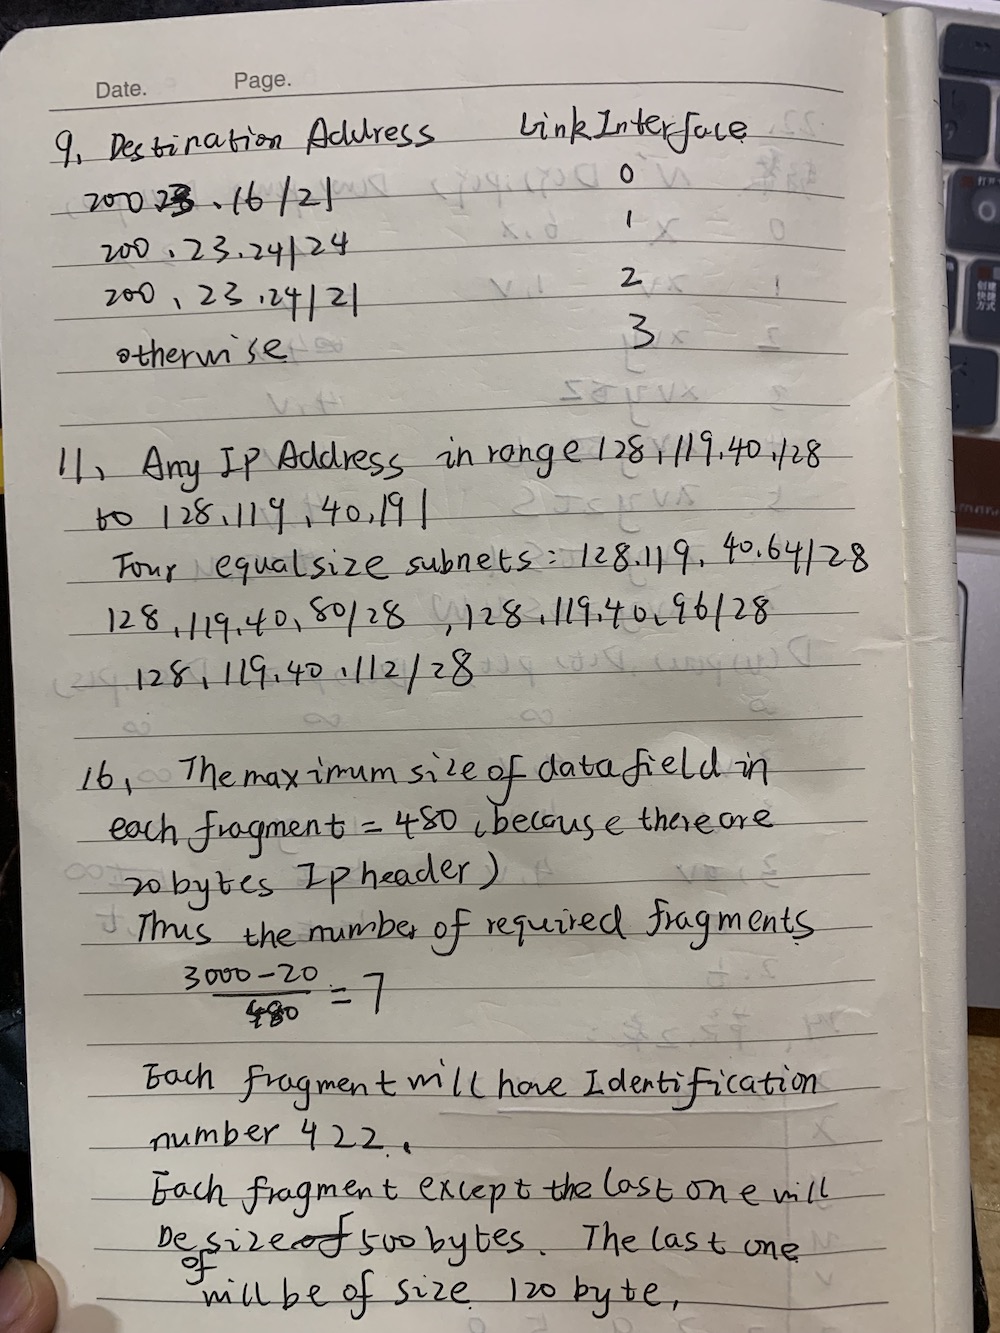 Date. Page.
9. Destination Address Link Interface
200 23 .16/21 0
200.23.24/24 1
200.23.24/21 2
otherwise 3
11. Any Ip Address in range 128.119.40.128
to 128.119.40.191
Four equal size subnets: 128.119.40.64/28
128.119.40.80/28, 128.119.40.96/28
128.119.40.112/28
16. The maximum size of data field in
each fragment = 480 (because there are
20 bytes Ip header)
Thus the number of required fragments
3000-20
480
= 7
Each fragment will have Identification
number 422.
Each fragment except the last one will
be size of 500 bytes. The last one
of
will be of size 120 byte,